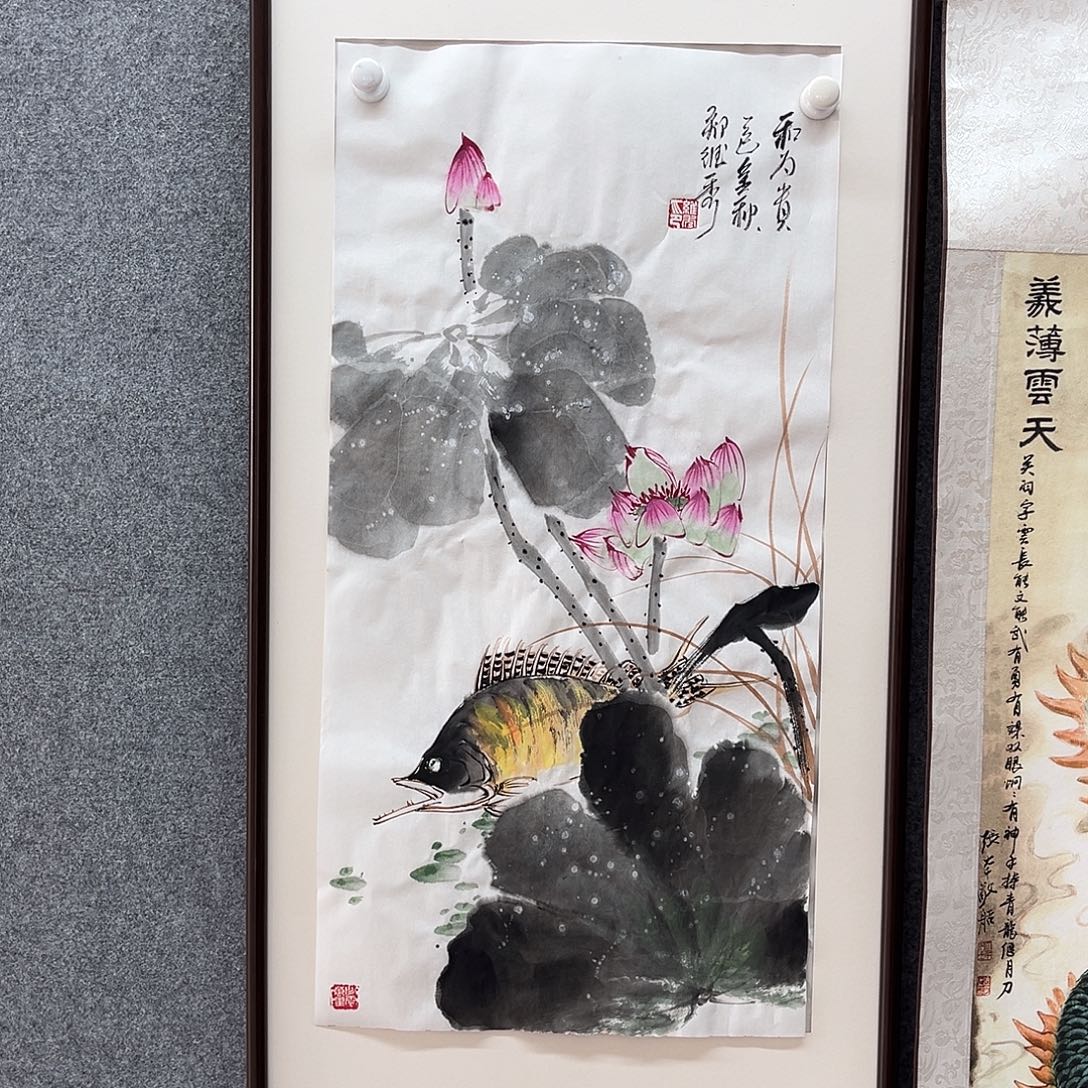 和为贵
乙巳金秋
義薄雲天
关羽字雲長能文能武有勇有謀双眼炯々有神手持青龍偃月刀